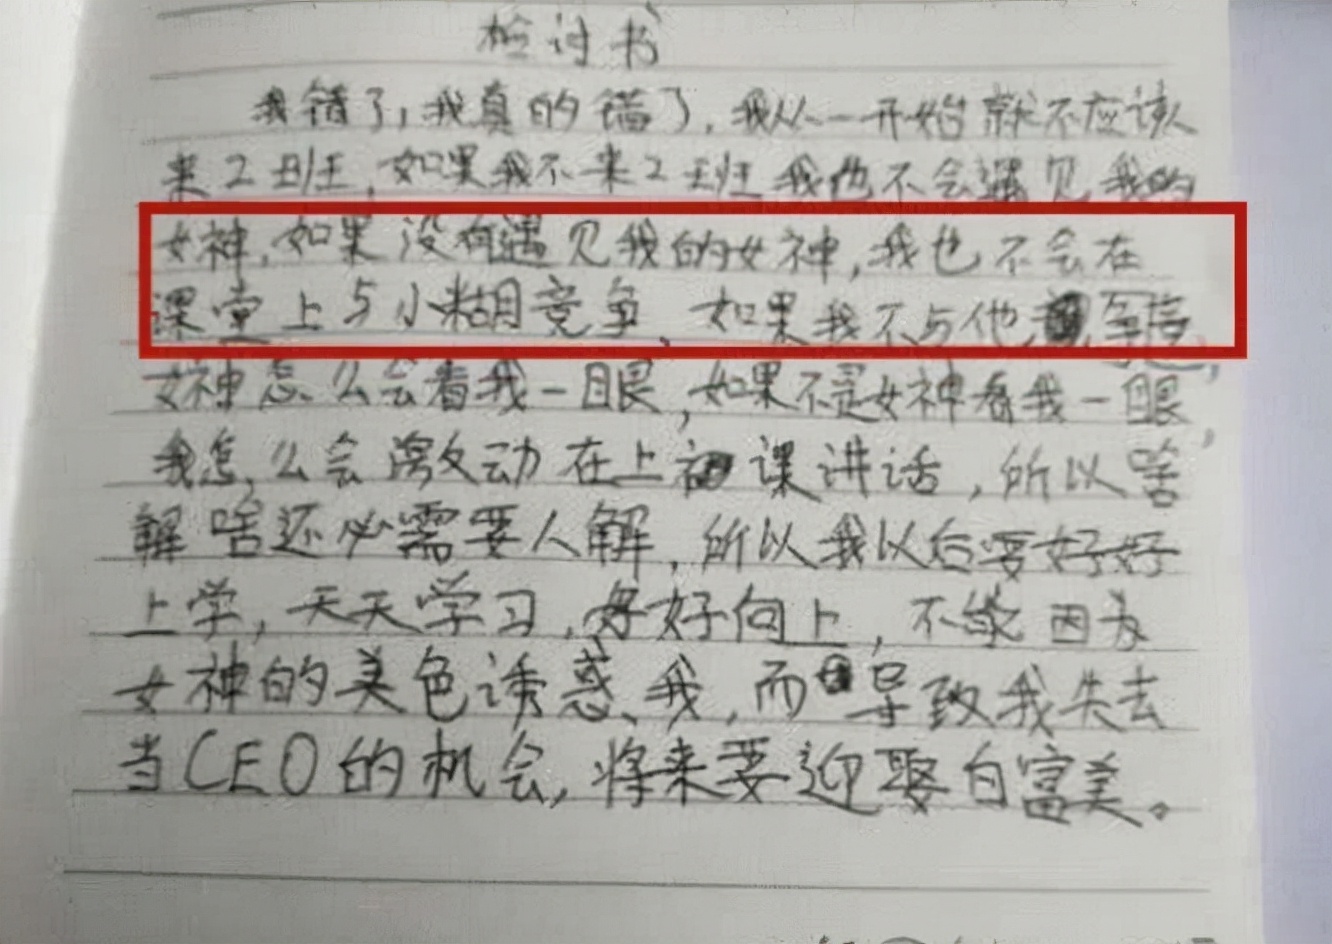 检讨书
我错了,我真的错了,我从一开始就不应该
来2班,如果我不来2班我也不会遇见我的
女神,如果没有遇见我的女神,我也不会在
课堂上与小糊竞争、如果我不与他
女神怎么会看我一眼,如果不是女神看我一眼,
我怎么会激动在上课讲话,所以啥
解啥还必需要人解,所以我以后要好好
上学,天天学习,好好向上,不能因为
女神的美色诱惑、我,而导致我失去
当CEO的机会,将来要迎娶白富美。